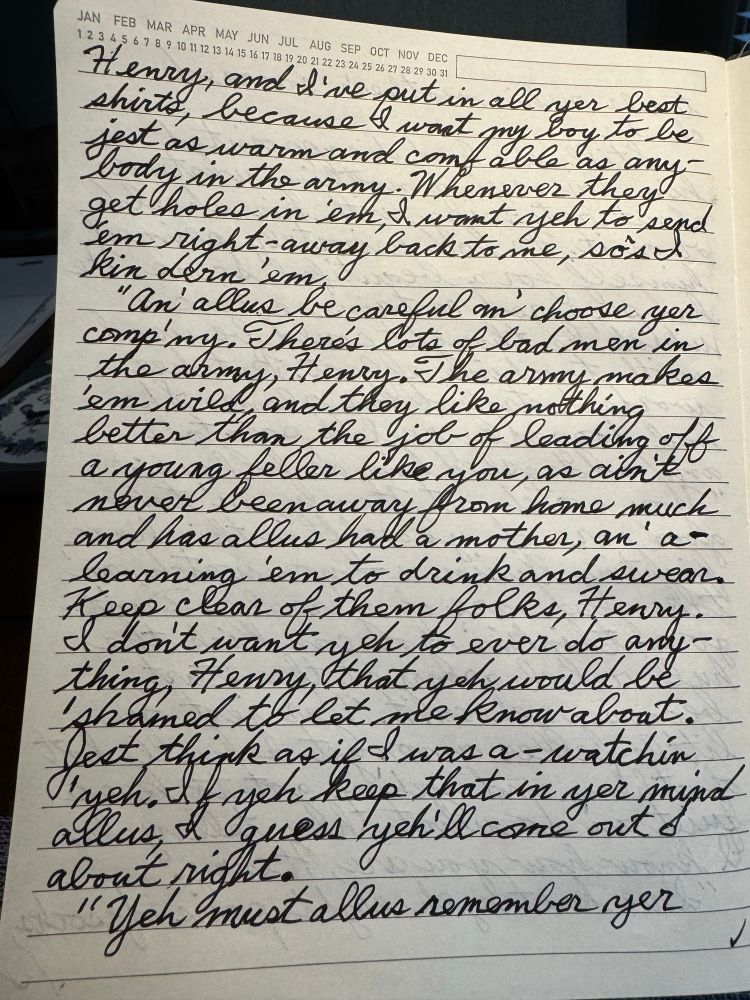 JAN FEB MAR APR MAY JUN JUL AUG SEP OCT NOV DEC
1 2 3 4 5 6 7 8 9 10 11 12 13 14 15 16 17 18 19 20 21 22 23 24 25 26 27 28 29 30 31
Henry, and I've put in all yer best
shirts, because I want my boy to be
jest as warm and comf'able as any-
body in the army. Whenever they
get holes in 'em, I want yeh to send
'em right-away back to me, so's I
kin dern 'em.
"An' allus be careful an' choose yer
comp'ny. There's lots of bad men in
the army, Henry. The army makes
'em wild, and they like nothing
better than the job of leading off
a young feller like you, as ain't
never been away from home much
and has allus had a mother, an' a-
learning 'em to drink and swear.
Keep clear of them folks, Henry.
I don't want yeh to ever do any-
thing, Henry, that yeh would be
'shamed to let me know about.
Jest think as if I was a-watchin
'yeh. If yeh keep that in yer mind
allus, I guess yeh'll come out
about right.
"Yeh must allus remember yer